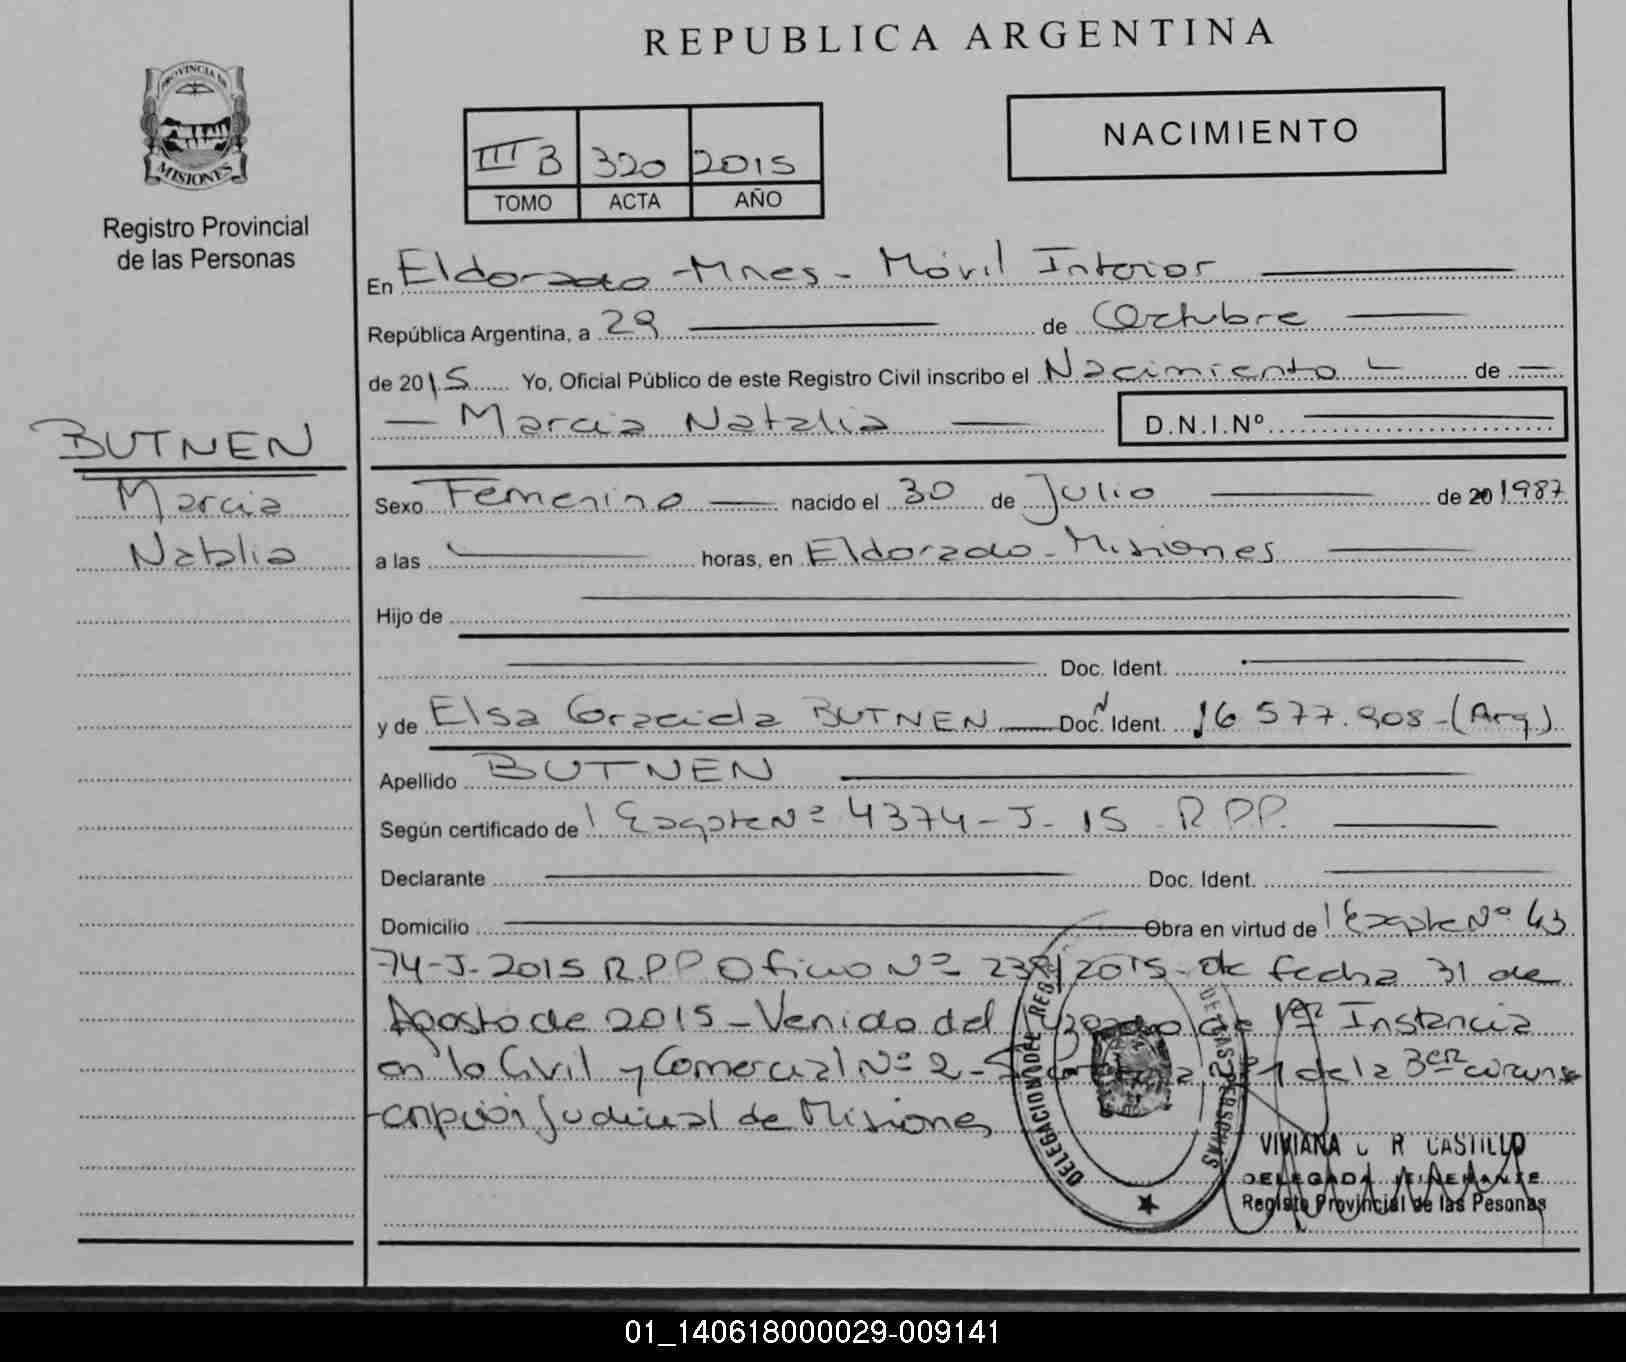 REPUBLICA ARGENTINA
PROVINCIA DE
MISIONES
Registro Provincial
de las Personas
III B 320 2015
TOMO ACTA AÑO
NACIMIENTO
En Eldorado - Mnes - Móvil Interior
República Argentina, a 29 de Octubre
de 2015 Yo, Oficial Público de este Registro Civil inscribo el Nacimiento de
Marcia Natalia D.N.I.Nº
BUTNEN
Marcia
Natalia
Sexo Femenino nacido el 30 de Julio de 20 1987
a las horas, en Eldorado - Misiones
Hijo de
Doc. Ident.
y de Elsa Graciela BUTNEN Doc. Ident. 16 577.908 - (Arg)
Apellido BUTNEN
Según certificado de Expte Nº 4374 - J - 15 - R P P.
Declarante Doc. Ident.
Domicilio Obra en virtud de Expte Nº 43
74-J-2015 R.P.P Oficio Nº /2015 - de fecha 31 de
Agosto de 2015 - Venido del Juzgado de 1er Instancia
en lo Civil y Comercial Nº 2 - 1 de la 3er circuns
cripción Judicial de Misiones
DELEGACION DEL REG DE LAS PERSONAS
VIVIANA R CASTILLO
DELEGADA ITINERANTE
Registo Provincial de las Pesonas
01_140618000029-009141